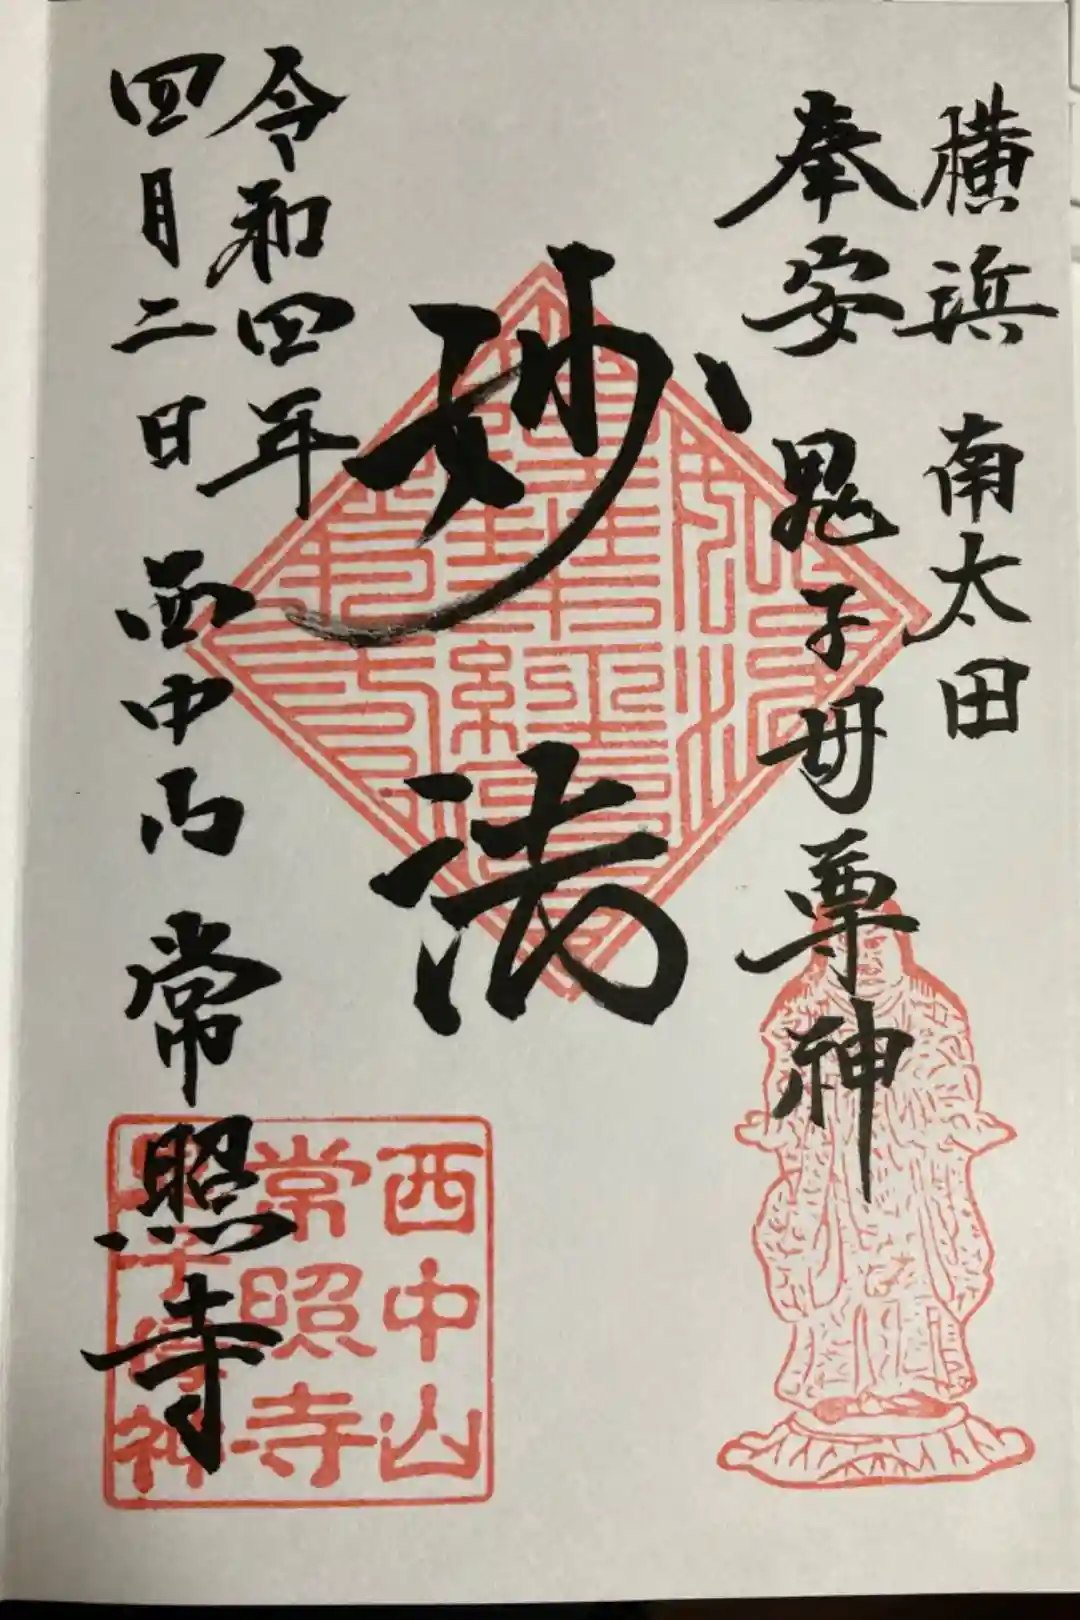 横浜 南太田
奉安 鬼子母尊神
妙法
令和四年
四月二日 西中山 常照寺
西中山
常照寺
鬼子母尊神